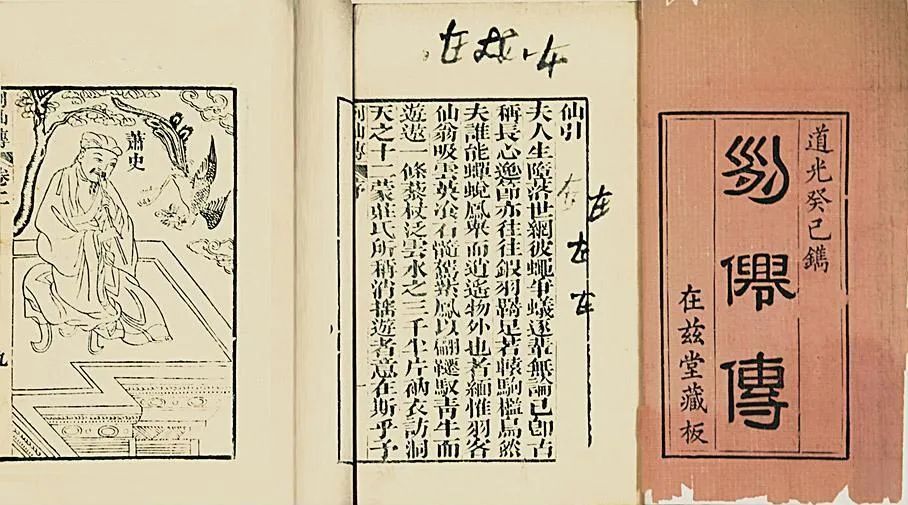 道光癸巳鐫
列僊傳
在茲堂藏板
仙引
夫人生墮落世網彼蠅爭蟻逐輩無論已卽古
稱長心逸節亦往往鎩羽羈足若轅駒檻鳥然
夫誰能蟬蛻鳳舉而逍遙物外也者緬惟羽客
仙翁吸雲英冶石髓駕紫鳳以翩躚馭青牛而
遊遨一條藜杖泛雲水之三千半片衲衣訪洞
天之十二蒙莊氏所稱消搖遊者意在斯乎予
列仙傳 序
在
在
在
在
蕭史
列仙傳 卷二
九